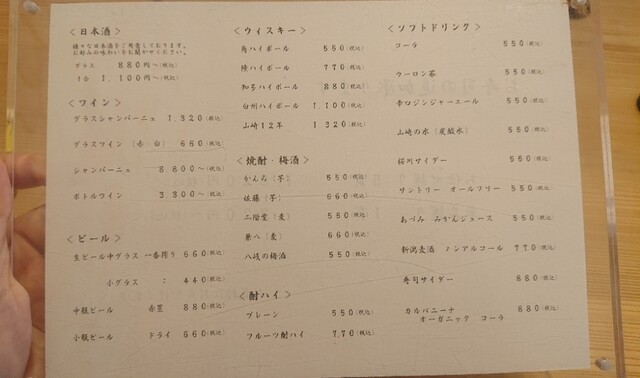 <日本酒>
様々な日本酒をご用意しております。
お好みの味わいをお聞かせください。
グラス 880円~(税込)
1合 1.100円~(税込)
<ワイン>
グラスシャンパーニュ 1.320(税込)
グラスワイン(赤/白) 660(税込)
シャンパーニュ 8.800~(税込)
ボトルワイン 3.300~(税込)
<ビール>
生ビール中グラス 一番搾り 660(税込)
小グラス : 440(税込)
中瓶ビール 赤星 880(税込)
小瓶ビール ドライ 660(税込)
<ウィスキー>
角ハイボール 550(税込)
陸ハイボール 770(税込)
知多ハイボール 880(税込)
白州ハイボール 1.100(税込)
山崎12年 1.320(税込)
<焼酎・梅酒>
かんろ(芋) 550(税込)
佐藤(芋) 660(税込)
二階堂(麦) 550(税込)
兼八(麦) 660(税込)
八岐の梅酒 550(税込)
<酎ハイ>
プレーン 550(税込)
フルーツ酎ハイ 770(税込)
<ソフトドリンク>
コーラ 550(税込)
ウーロン茶 550(税込)
辛口ジンジャーエール 550(税込)
山崎の水(炭酸水) 550(税込)
桜川サイダー 550(税込)
サントリー オールフリー 550(税込)
あづみ みかんジュース 550(税込)
新潟麦酒 ノンアルコール 770(税込)
寿司サイダー 880(税込)
カルパニーナ
オーガニック コーラ 880(税込)